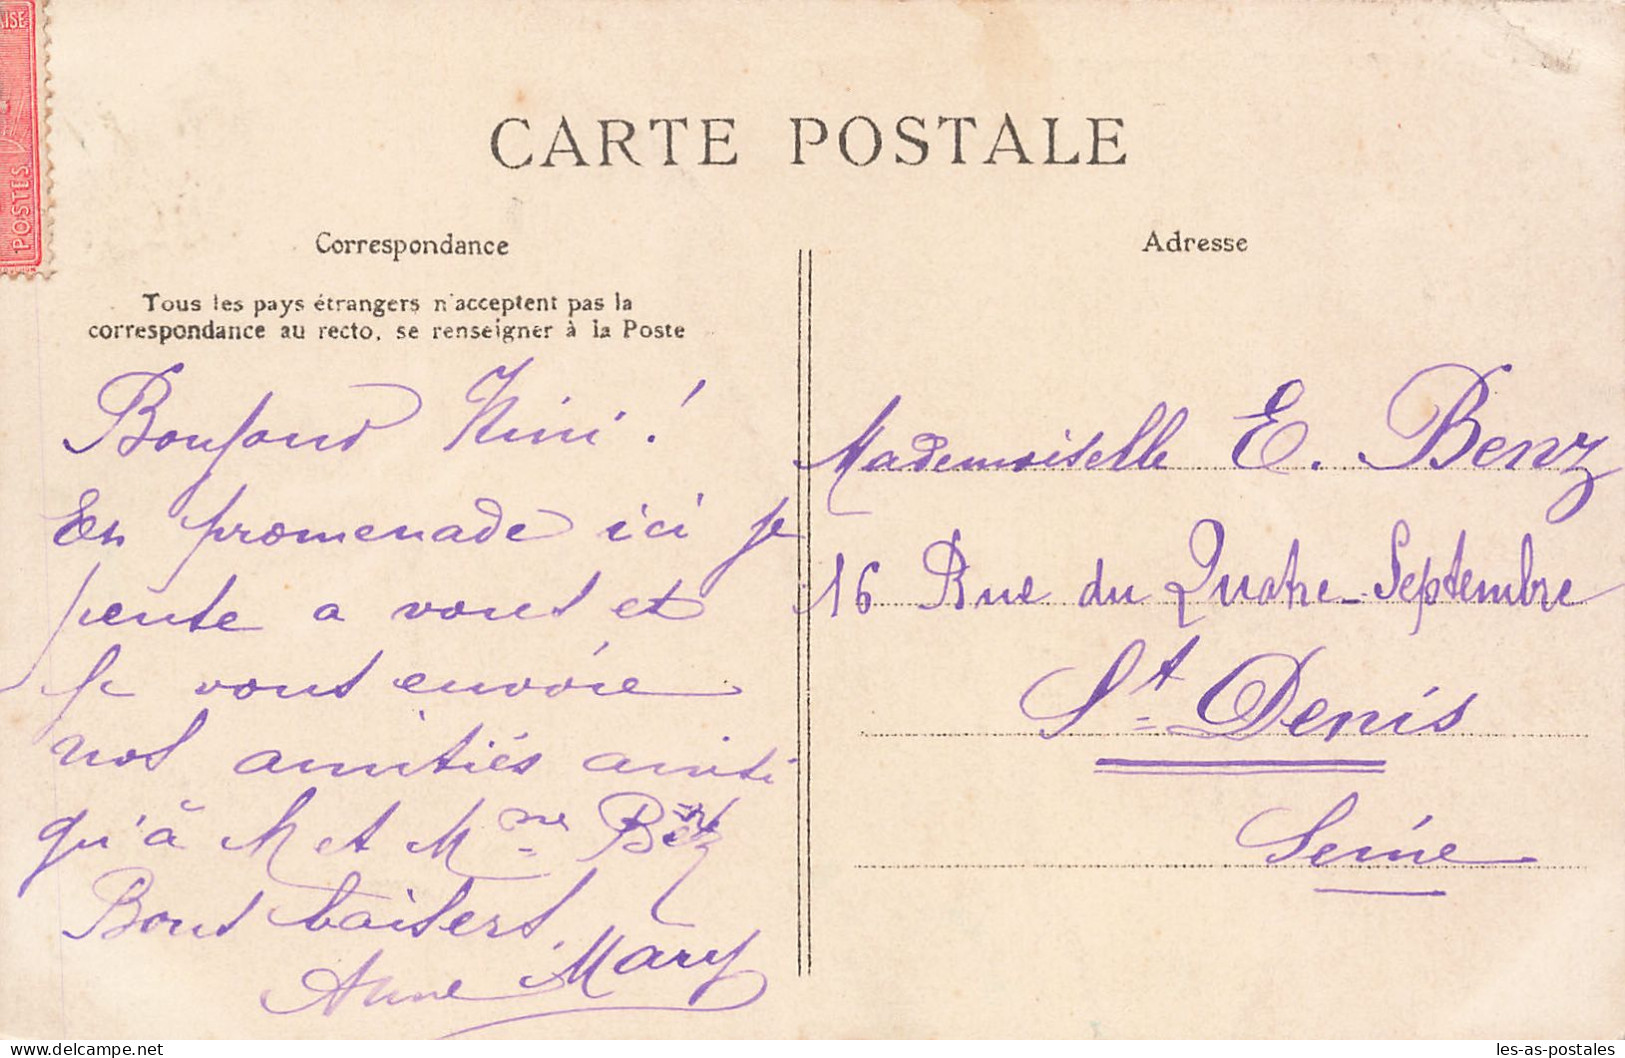 AISE
POSTES
CARTE POSTALE
Correspondance
Tous les pays étrangers n'acceptent pas la
correspondance au recto, se renseigner à la Poste
Bonjour Nini !
En promenade ici je
pense a vous et
je vous envoie
nos amitiés ainsi
qu'à M et Mme Benz
Bons baisers
Anne Mary
Adresse
Mademoiselle E. Benz
16 Rue du Quatre-Septembre
St Denis
Seine
delcampe.net
les-as-postales